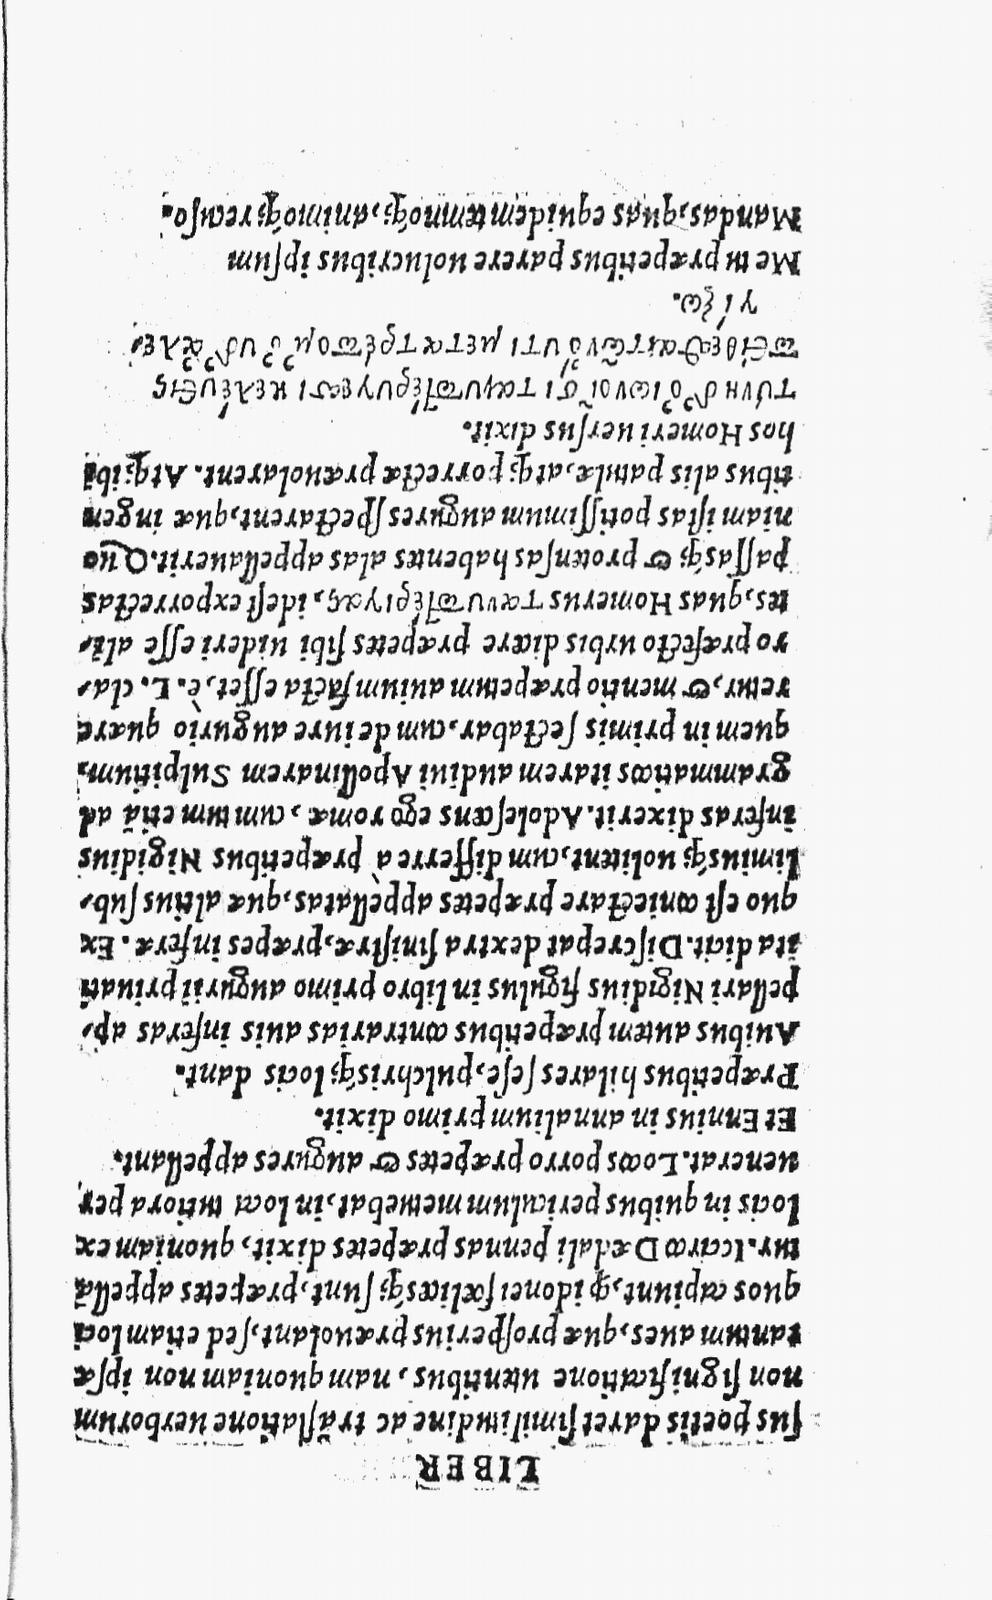 LIBER
sus poetis daret similitudine ac trāslatione uerborum
non significatione utentibus, nam quoniam non ipsæ
tantum aues, quæ prosperius præuolant, sed etiam loci
quos capiunt, ꝙ idonei fœlicesq́; sunt, præpetes appellā
tur. Icaro Dædali pennas præpetes dixit, quoniam ex
locis in quibus periculum metuebat, in loca tutiora per
uenerat. Locos porro præpetes & augures appellant.
Et Ennius in annalium primo dixit.
Præpetibus hilares sese, pulchrisq́; locis dant.
Auibus autem præpetibus contrarias auis inferas ap-
pellari Nigidius figulus in libro primo augurii priuati
ita dicit. Discrepat dextra sinistræ, præpes inferæ. Ex
quo est coniectare præpetes appellatas, quæ altius sub-
limiusq́; uolitent, cum differre à præpetibus Nigidius
inferas dixerit. Adolescens ego romæ, cum tum etiā ad
grammaticos itarem audiui Apollinarem Sulpitium,
quem in primis sectabar, cum de iure augurio quære
retur, & mentio præpetum auium facta esset, è. L. cla-
ro præfecto urbis dicere præpetes sibi uideri esse ali-
tes, quas Homerus τανυπτέρυγας, idest exporrectas
passasq́; & protensas habentes alas appellauerit. Quo
niam istas potissimum augures spectarent, quæ ingen
tibus alis patulæ, atq́; porrectæ præuolarent. Atq́; ibi
hos Homeri uersus dixit.
τύνη δ' οἰωνοῖσι τανυπτερύγεσσι κελεύεις
πείθεσθαι τῶν οὔτι μετατρέπομ' οὐδ' ἀλε
γίζω.
Me tu præpetibus parere uolucribus ipsum
Mandas, quas equidem temnoq́;, animoq́; recuso.